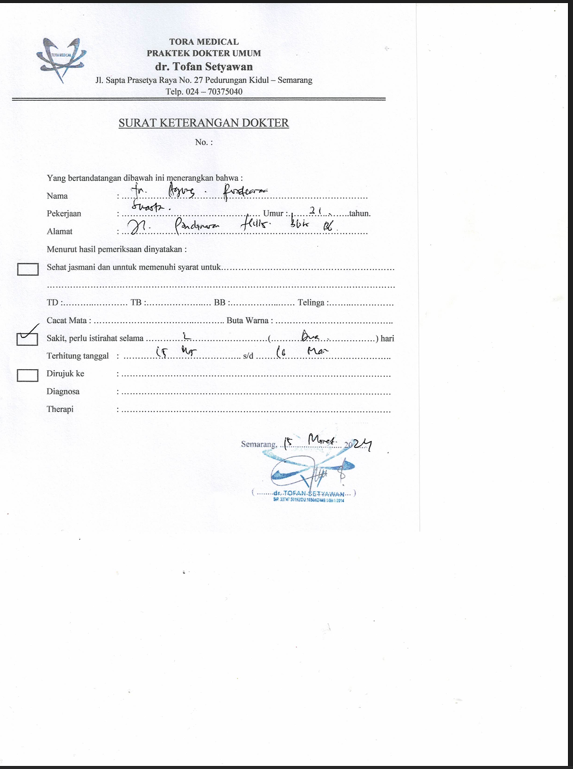 TORA MEDICAL
PRAKTEK DOKTER UMUM
dr. Tofan Setyawan
Jl. Sapta Prasetya Raya No. 27 Pedurungan Kidul – Semarang
Telp. 024 – 70375040
SURAT KETERANGAN DOKTER
No. :
Yang bertandatangan dibawah ini menerangkan bahwa :
Nama : Tn. Agung
Pekerjaan : Swasta. Umur : 21 tahun.
Alamat : Jl. Pandanaran Hills Blok
Menurut hasil pemeriksaan dinyatakan :
Sehat jasmani dan unntuk memenuhi syarat untuk
TD : TB : BB : Telinga :
Cacat Mata : Buta Warna :
Sakit, perlu istirahat selama 2 ( Dua ) hari
Terhitung tanggal : 15 s/d 16 Mar
Dirujuk ke :
Diagnosa :
Therapi :
Semarang, 15 Maret 2024
( dr. TOFAN SETYAWAN )